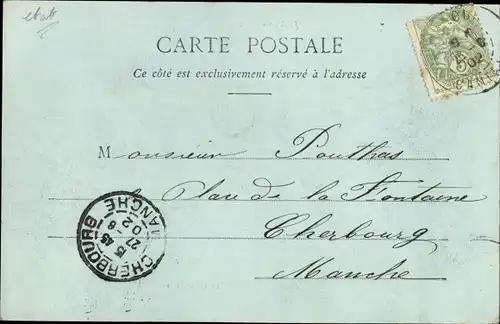 CARTE POSTALE
Ce côté est exclusivement réservé à l'adresse
Monsieur Pouthas
Place de la Fontaine
Cherbourg
Manche
CHERBOURG MANCHE
15 45
27 8
02